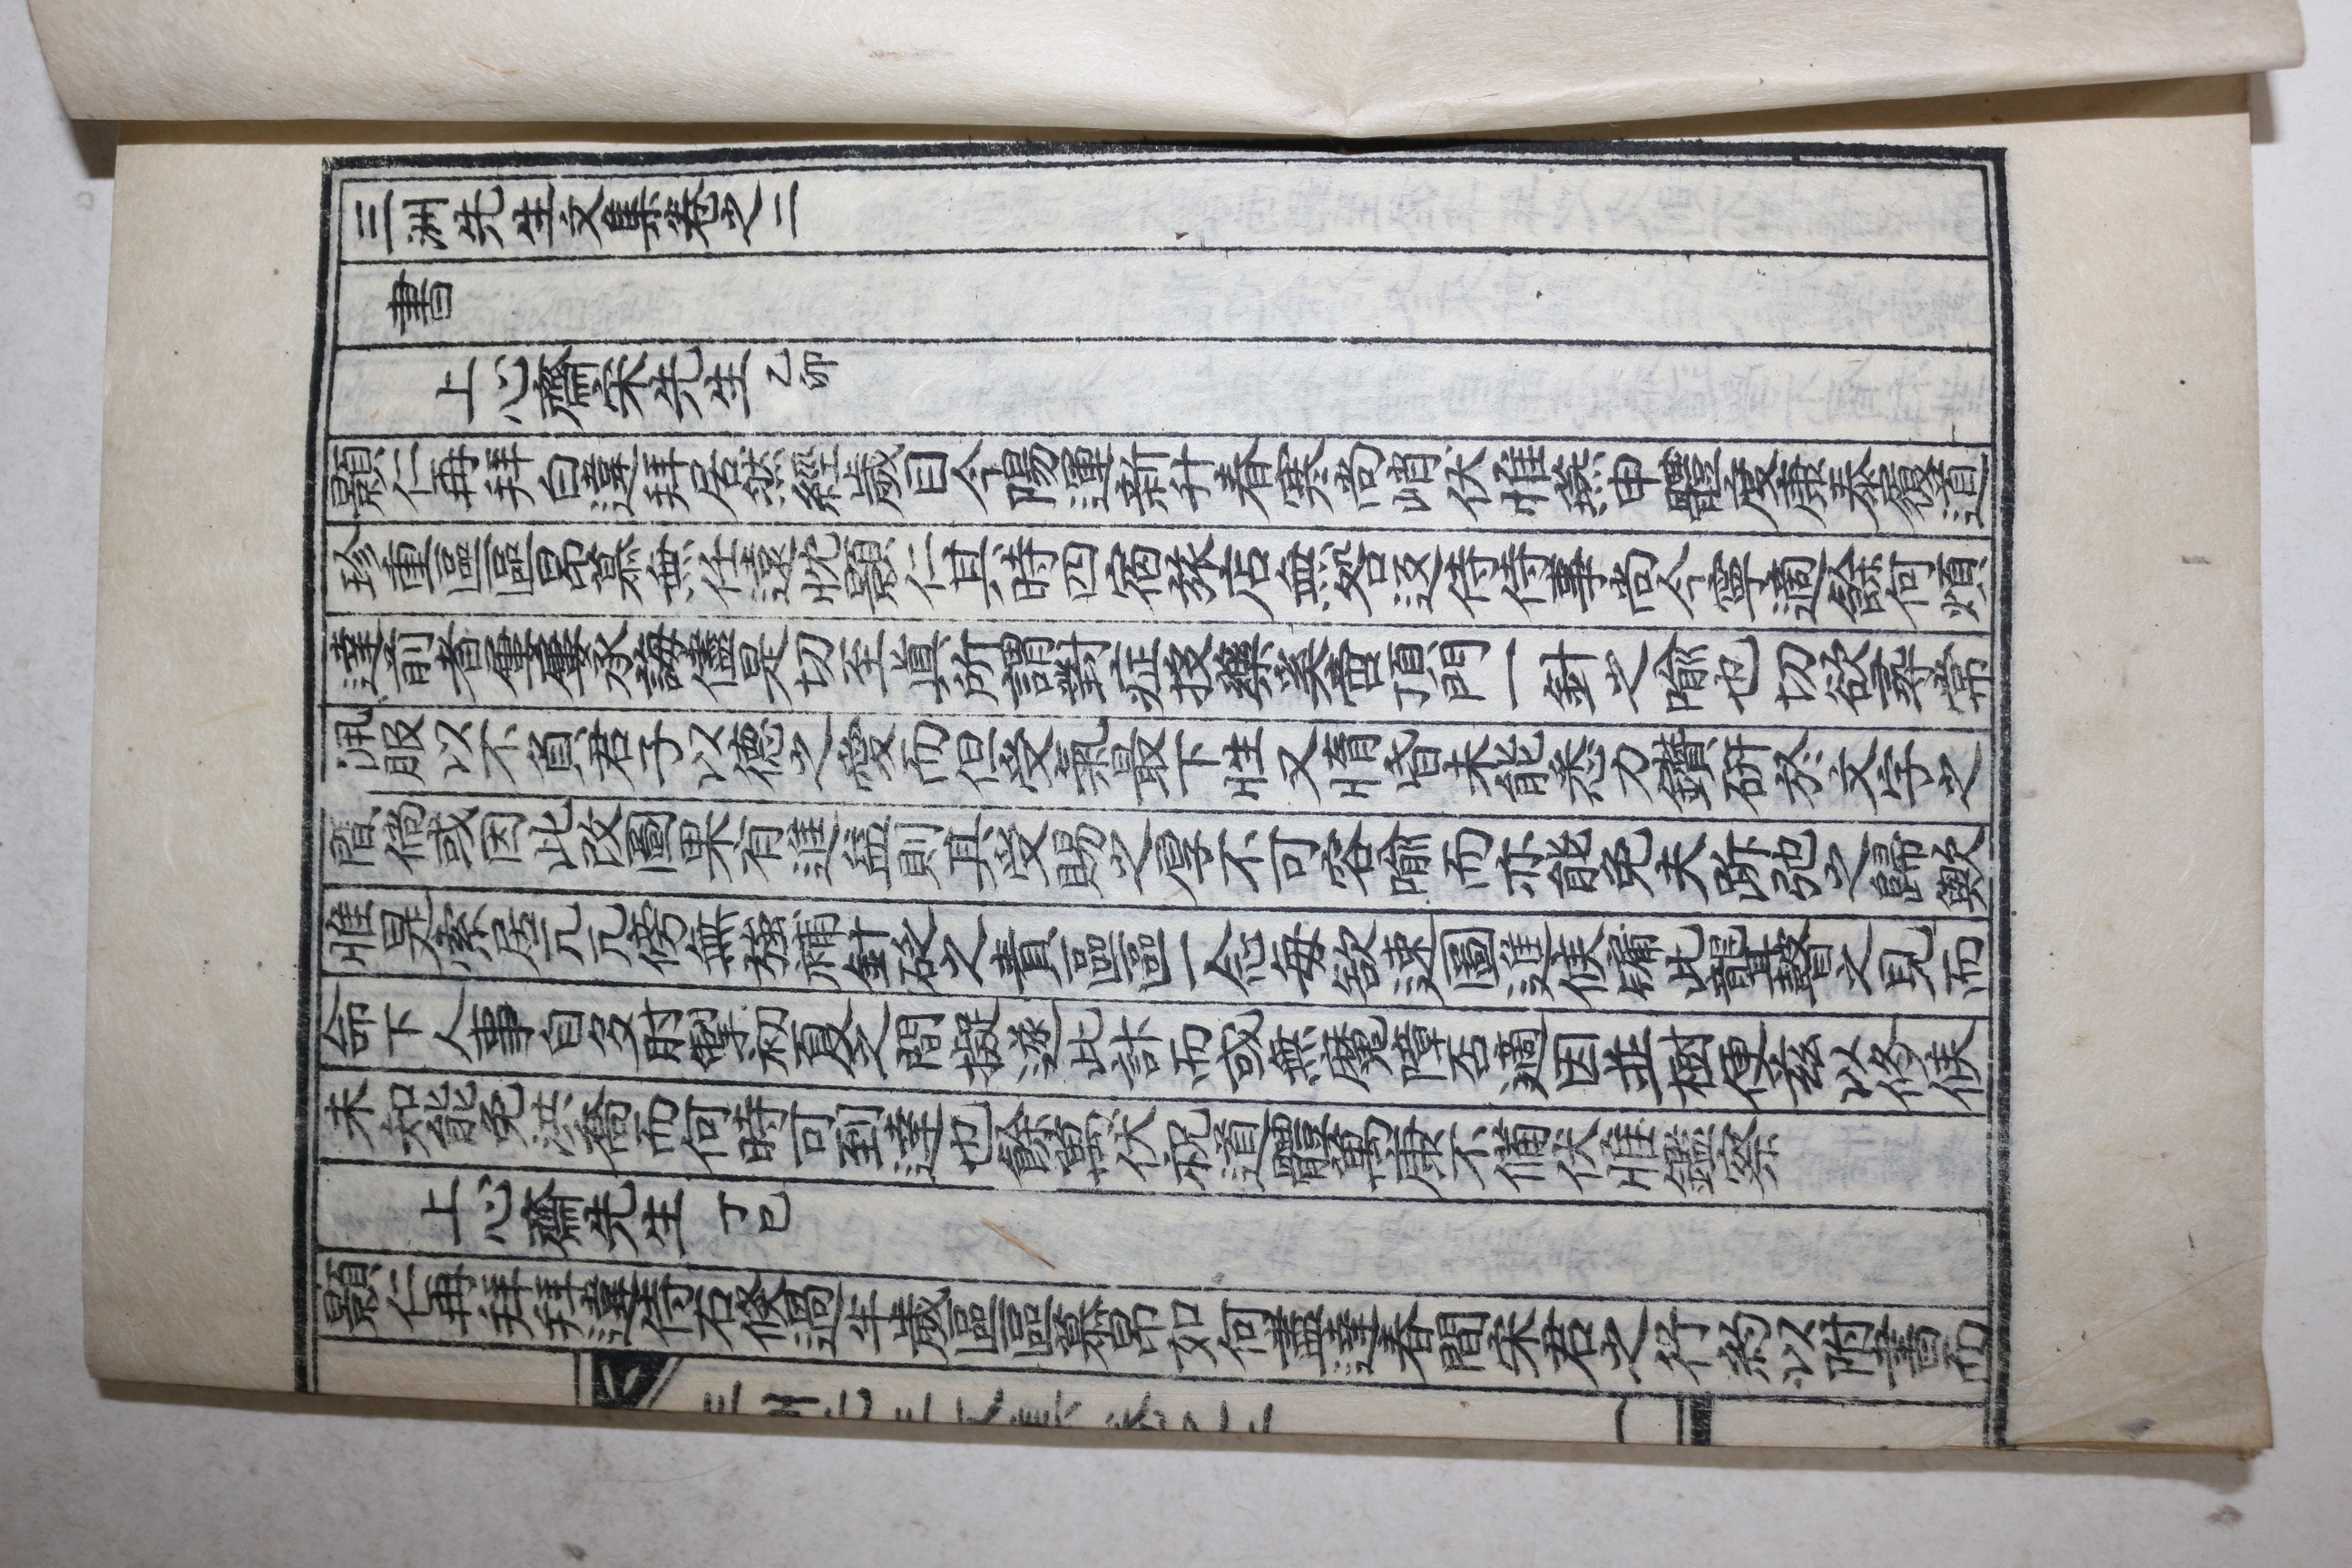 三洲先生文集卷之二
書
上心齋宋先生 乙卯
顯仁再拜白違拜居然經歲目今陽運新升春寒尚峭伏惟燕申體度康泰履道
珍重區區昂慕無任遠忱顯仁其時四宿旅店無咎返侍侍事尚今寧適餘何煩
達前者屢屢承誨儘是切至眞所謂對症投藥奚啻頂門一針之喩也切欲尋常
佩服以不負君子以德之愛而但受氣最下性又惰昏未能悉力鑽硏於文字之
間倘或因此改圖果有進益則其受賜之厚不可容喩而亦能免夫跅弛之歸歟
惟是索居兀兀傍無強補針砭之責區區一念每欲速圖進候牖此聾瞽之見而
命下人事自多肘掣初夏之間擬遂此計而或無魔障否適因並樹便茲以修候
未知能免洪喬而何時可到達也餘萬伏祝道體萬康不備伏惟鑑察
上心齋先生 丁巳
顯仁再拜拜違侍右倏過半歲區區慕昂如何盡達春間宋君之行約以附書而
三洲先生文集 卷之二 一